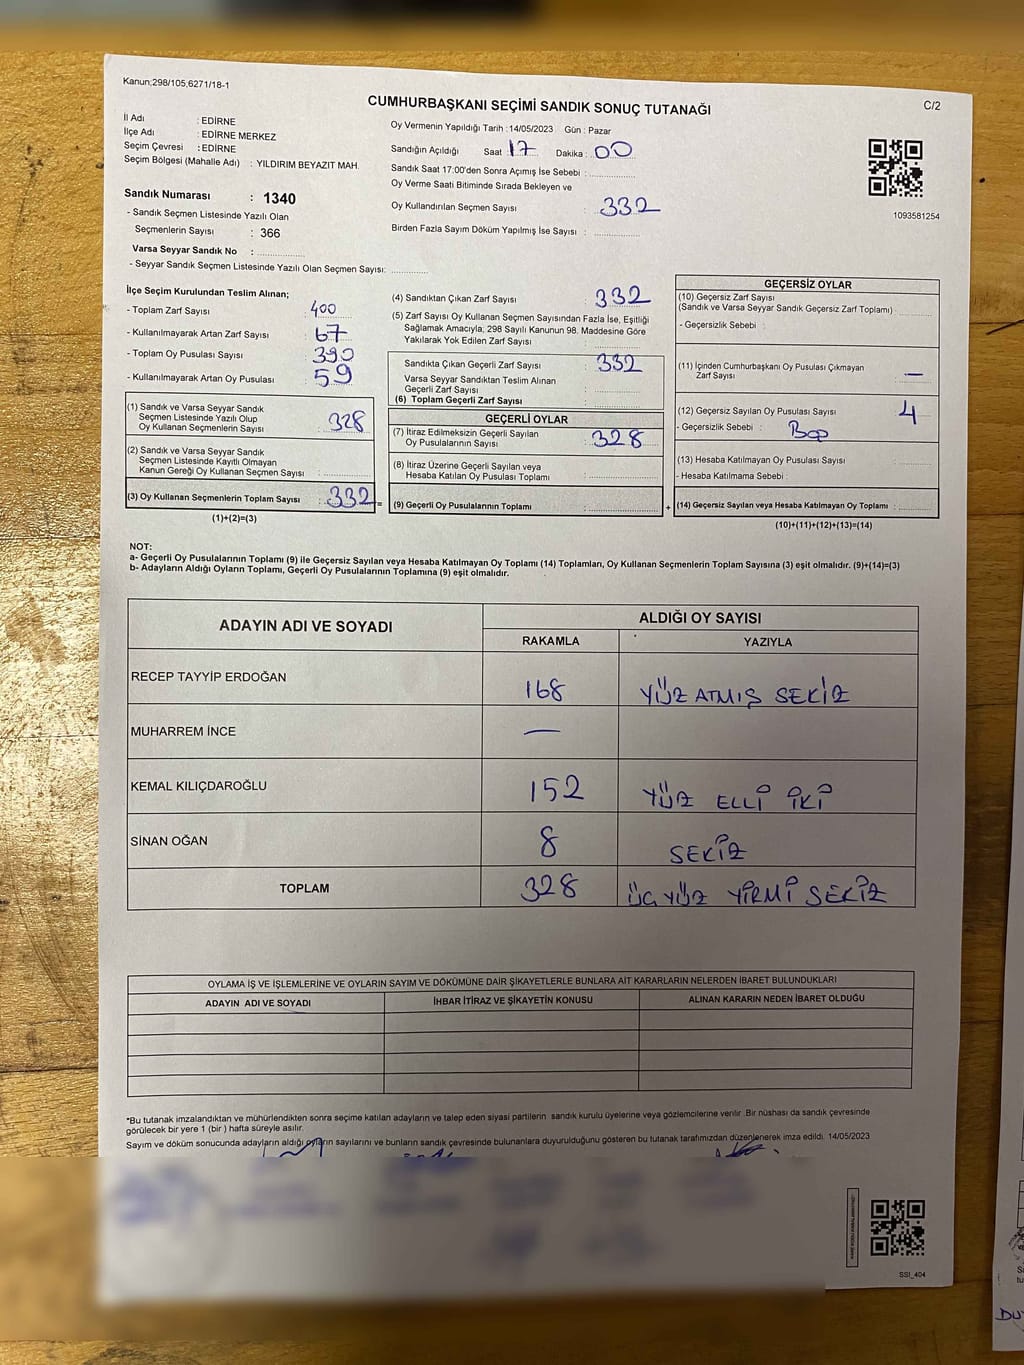 Kanun;298/105,6271/18-1
CUMHURBAŞKANI SEÇİMİ SANDIK SONUÇ TUTANAĞI
C/2
İl Adı : EDİRNE
İlçe Adı : EDİRNE MERKEZ
Seçim Çevresi : EDİRNE
Seçim Bölgesi (Mahalle Adı) : YILDIRIM BEYAZIT MAH.
Sandık Numarası : 1340
- Sandık Seçmen Listesinde Yazılı Olan
Seçmenlerin Sayısı : 366
Varsa Seyyar Sandık No :
- Seyyar Sandık Seçmen Listesinde Yazılı Olan Seçmen Sayısı:
Oy Vermenin Yapıldığı Tarih : 14/05/2023 Gün : Pazar
Sandığın Açıldığı Saat 17 Dakika : 00
Sandık Saat 17:00'den Sonra Açımış İse Sebebi :
Oy Verme Saati Bitiminde Sırada Bekleyen ve
Oy Kullandırılan Seçmen Sayısı : 332
Birden Fazla Sayım Döküm Yapılmış İse Sayısı :
1093581254
İlçe Seçim Kurulundan Teslim Alınan;
- Toplam Zarf Sayısı : 400
- Kullanılmayarak Artan Zarf Sayısı : 67
- Toplam Oy Pusulası Sayısı : 390
- Kullanılmayarak Artan Oy Pusulası : 59
(1) Sandık ve Varsa Seyyar Sandık
Seçmen Listesinde Yazılı Olup
Oy Kullanan Seçmenlerin Sayısı : 328
(2) Sandık ve Varsa Seyyar Sandık
Seçmen Listesinde Kayıtlı Olmayan
Kanun Gereği Oy Kullanan Seçmen Sayısı :
(3) Oy Kullanan Seçmenlerin Toplam Sayısı : 332 =
(1)+(2)=(3)
(4) Sandıktan Çıkan Zarf Sayısı : 332
(5) Zarf Sayısı Oy Kullanan Seçmen Sayısından Fazla İse, Eşitliği
Sağlamak Amacıyla; 298 Sayılı Kanunun 98. Maddesine Göre
Yakılarak Yok Edilen Zarf Sayısı :
Sandıkta Çıkan Geçerli Zarf Sayısı : 332
Varsa Seyyar Sandıktan Teslim Alınan
Geçerli Zarf Sayısı :
(6) Toplam Geçerli Zarf Sayısı :
GEÇERLİ OYLAR
(7) İtiraz Edilmeksizin Geçerli Sayılan
Oy Pusulalarının Sayısı : 328
(8) İtiraz Üzerine Geçerli Sayılan veya
Hesaba Katılan Oy Pusulası Toplamı :
(9) Geçerli Oy Pusulalarının Toplamı : +
GEÇERSİZ OYLAR
(10) Geçersiz Zarf Sayısı
(Sandık ve Varsa Seyyar Sandık Geçersiz Zarf Toplamı) :
- Geçersizlik Sebebi :
(11) İçinden Cumhurbaşkanı Oy Pusulası Çıkmayan
Zarf Sayısı : —
(12) Geçersiz Sayılan Oy Pusulası Sayısı : 4
- Geçersizlik Sebebi : Boş
(13) Hesaba Katılmayan Oy Pusulası Sayısı :
- Hesaba Katılmama Sebebi :
(14) Geçersiz Sayılan veya Hesaba Katılmayan Oy Toplamı :
(10)+(11)+(12)+(13)=(14)
NOT:
a- Geçerli Oy Pusulalarının Toplamı (9) ile Geçersiz Sayılan veya Hesaba Katılmayan Oy Toplamı (14) Toplamları, Oy Kullanan Seçmenlerin Toplam Sayısına (3) eşit olmalıdır. (9)+(14)=(3)
b- Adayların Aldığı Oyların Toplamı, Geçerli Oy Pusulalarının Toplamına (9) eşit olmalıdır.
ADAYIN ADI VE SOYADI
ALDIĞI OY SAYISI
RAKAMLA YAZIYLA
RECEP TAYYİP ERDOĞAN 168 YÜZ ATMIŞ SEKİZ
MUHARREM İNCE —
KEMAL KILIÇDAROĞLU 152 YÜZ ELLİ İKİ
SİNAN OĞAN 8 SEKİZ
TOPLAM 328 ÜÇ YÜZ YİRMİ SEKİZ
OYLAMA İŞ VE İŞLEMLERİNE VE OYLARIN SAYIM VE DÖKÜMÜNE DAİR ŞİKAYETLERLE BUNLARA AİT KARARLARIN NELERDEN İBARET BULUNDUKLARI
ADAYIN ADI VE SOYADI İHBAR İTİRAZ VE ŞİKAYETİN KONUSU ALINAN KARARIN NEDEN İBARET OLDUĞU
*Bu tutanak imzalandıktan ve mühürlendikten sonra seçime katılan adayların ve talep eden siyasi partilerin sandık kurulu üyelerine veya gözlemcilerine verilir. Bir nüshası da sandık çevresinde
görülecek bir yere 1 (bir ) hafta süreyle asılır.
Sayım ve döküm sonucunda adayların aldığı oyların sayılarını ve bunların sandık çevresinde bulunanlara duyurulduğunu gösteren bu tutanak tarafımızdan düzenlenerek imza edildi. 14/05/2023
SSI_404